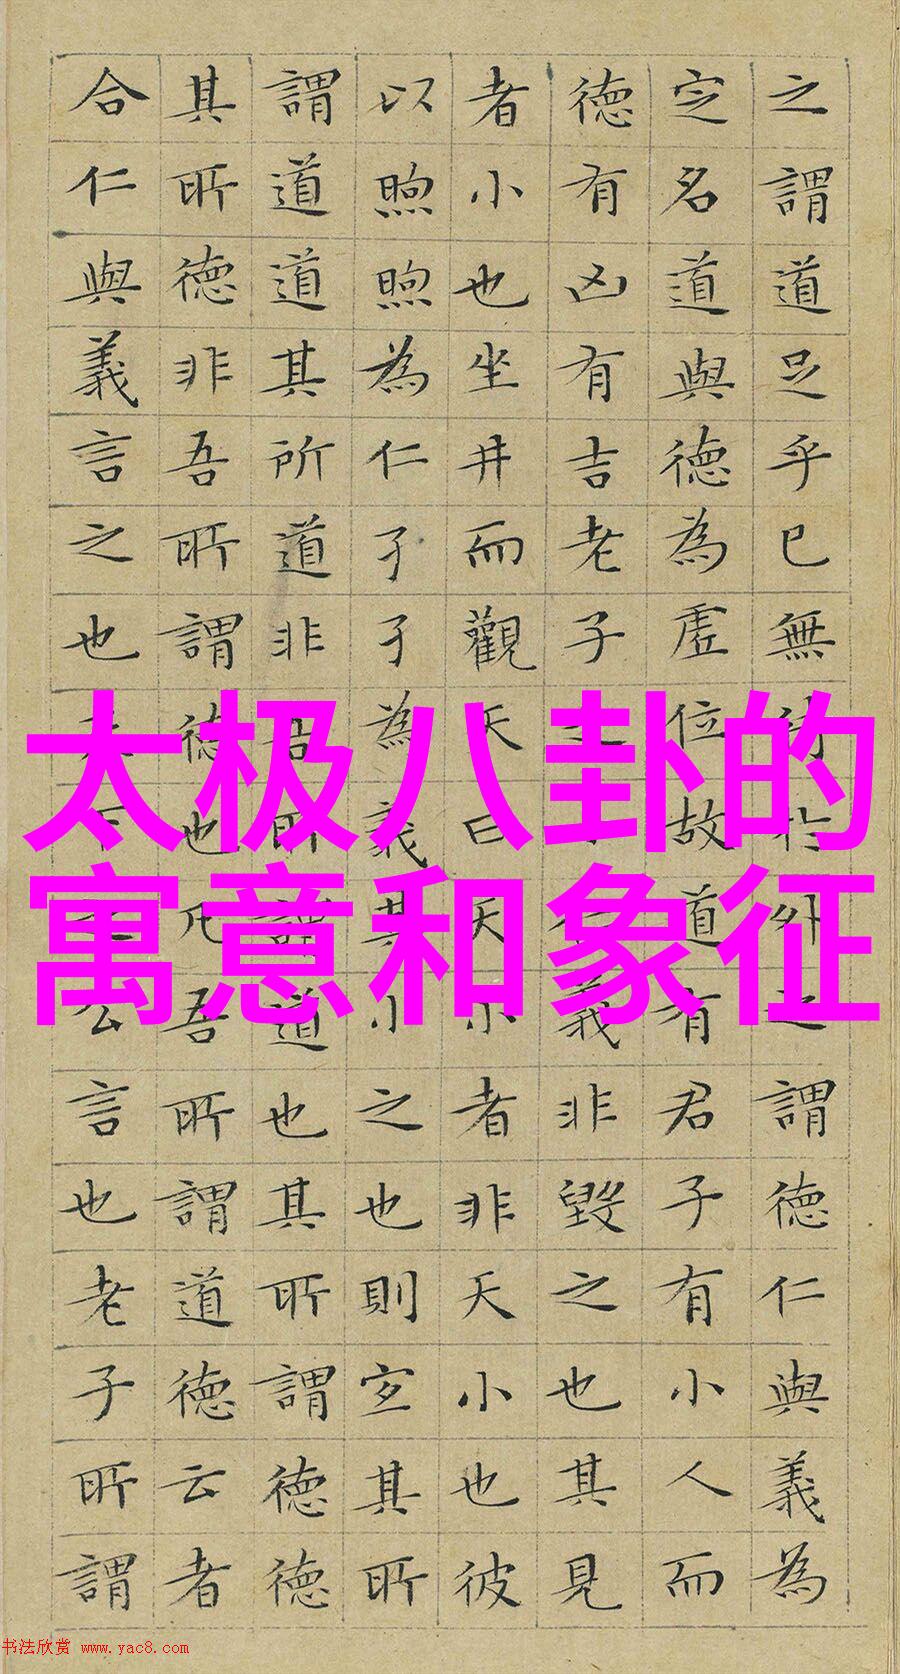 之謂道足乎己無待於外之謂德仁與義為
定名道與德為虛位故道有君子有小人而
德有凶有吉老子義非毀之也其見
者小也坐井而觀天曰天小者非天小也彼
以煦煦為仁孑孑為義其小之也則宜其所
謂道道其所道非吾所謂道也其所謂德德
其所德非吾所謂德也凡吾所謂道德云者
合仁與義言之也公言也老子所謂
太极八卦的
寓意和象征
书法欣赏 www.yac8.com